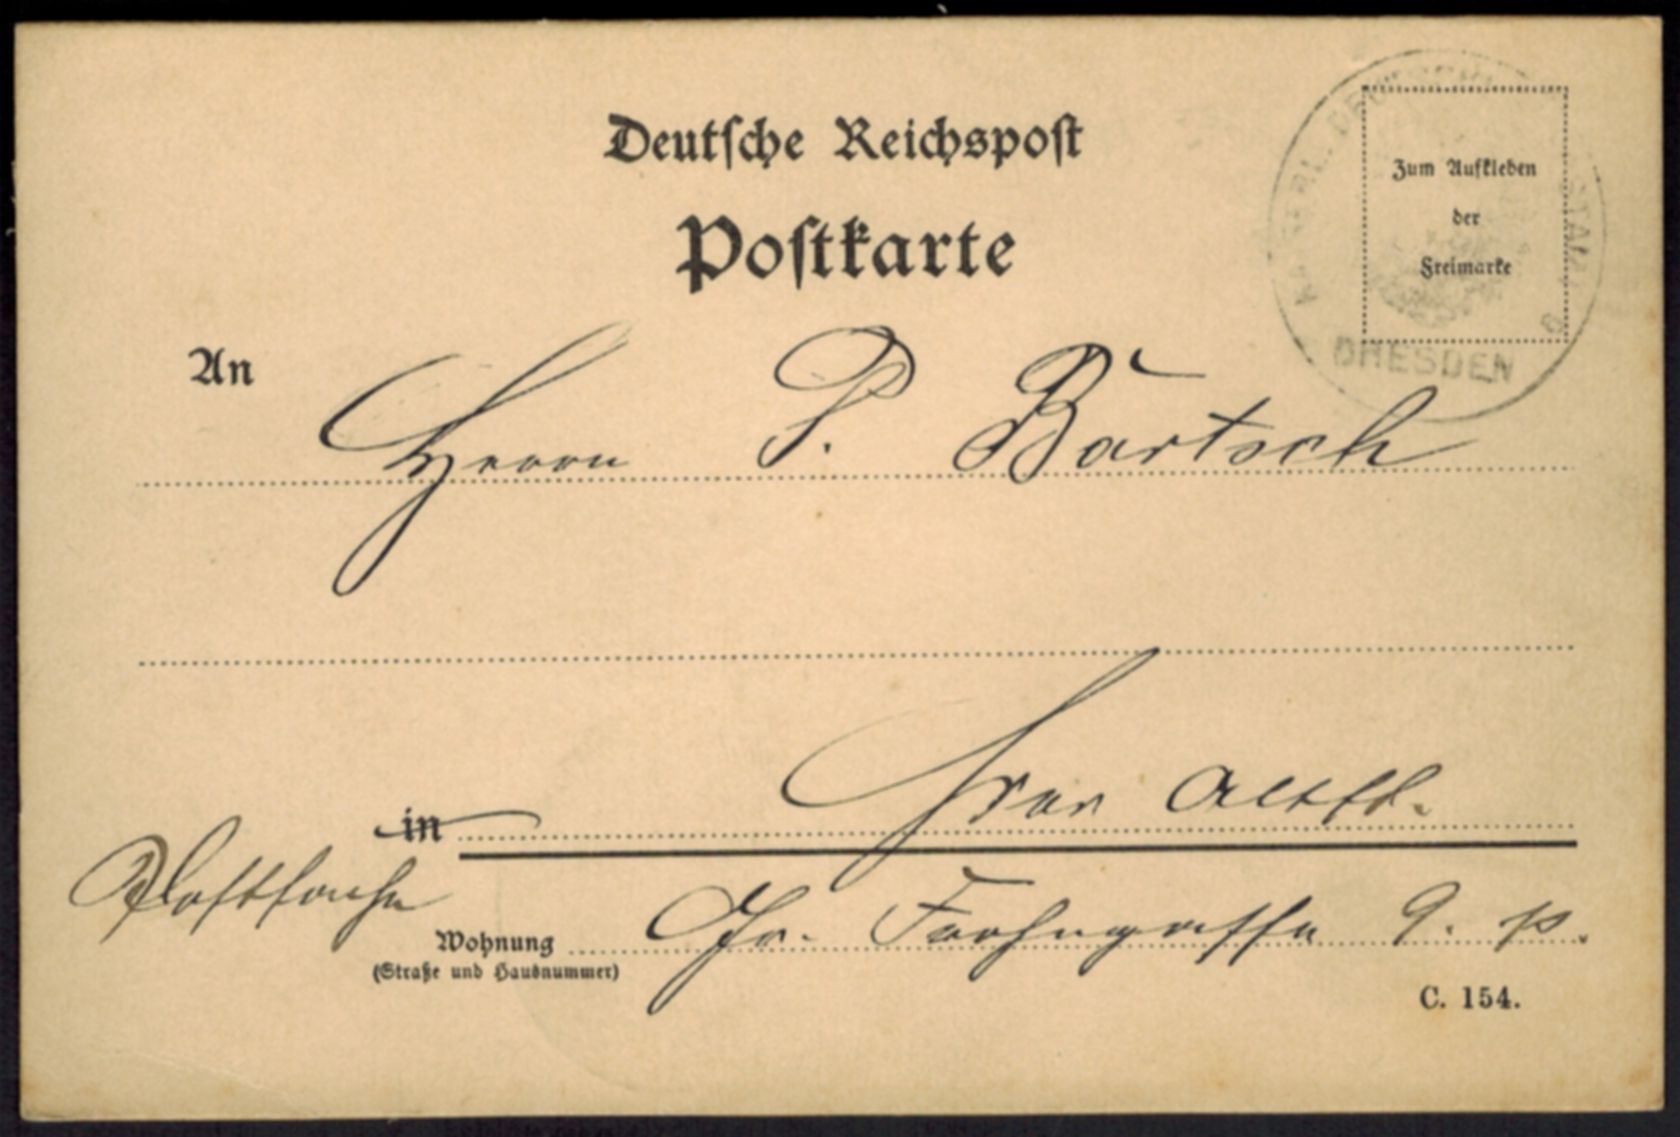 Deutsche Reichspost
Postkarte
Zum Aufkleben
der
Freimarke
DRESDEN
An
Herrn P. Bartsch
hier Altst.
in
Postsache
Wohnung
(Straße und Hausnummer)
Gr. Frohngasse 9. p.
C. 154.